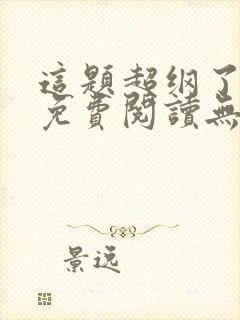 這題超纲了
免費閱讀無
景逸